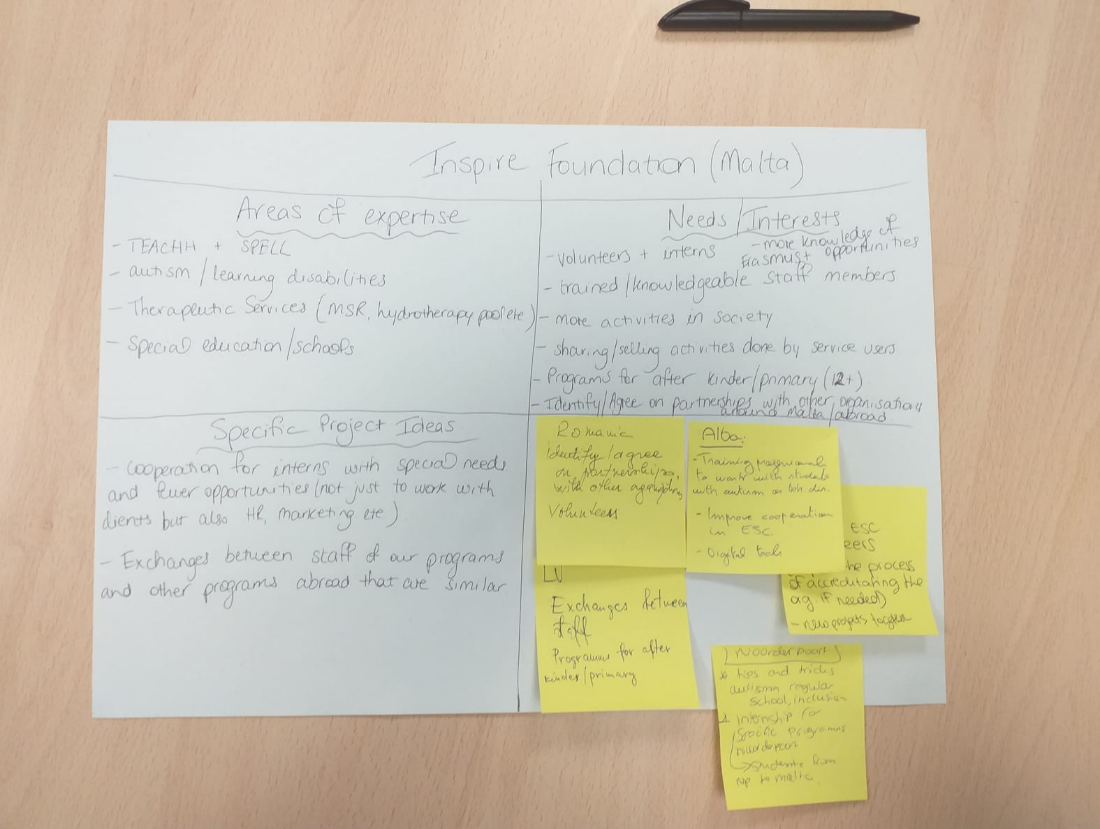 Inspire Foundation (Malta)
Areas of expertise
- TEACHH + SPELL
- autism / learning disabilities
- Therapeutic Services (MSR, hydrotherapy pool etc)
- Special education/schools
Needs/Interests
- volunteers + interns
- more knowledge of
Erasmus+ opportunities
- trained/knowledgeable staff members
- more activities in society
- sharing/selling activities done by service users
- Programs for after kinder/primary (12+)
- Identify/Agree on partnerships with other organisations
around Malta/abroad
Specific Project Ideas
- Cooperation for interns with special needs
and fewer opportunities (not just to work with
clients but also HR, marketing etc)
- Exchanges between staff of our programs
and other programs abroad that are similar
identify/agree
on partnerships
with other
Volunteers
Alba:
- Training
to work with students
with autism
- Improve cooperation
in ESC.
- Digital tools
ESC
the process
of accreditating the
org. if needed)
- new projets together
LV
Exchanges between
staff
Programms for after
kinder/primary
Noorderpoort
* tips and tricks
autismn regular
school, inclusion
internship for
specific programms
noorderpoort
→ students from
np to malta